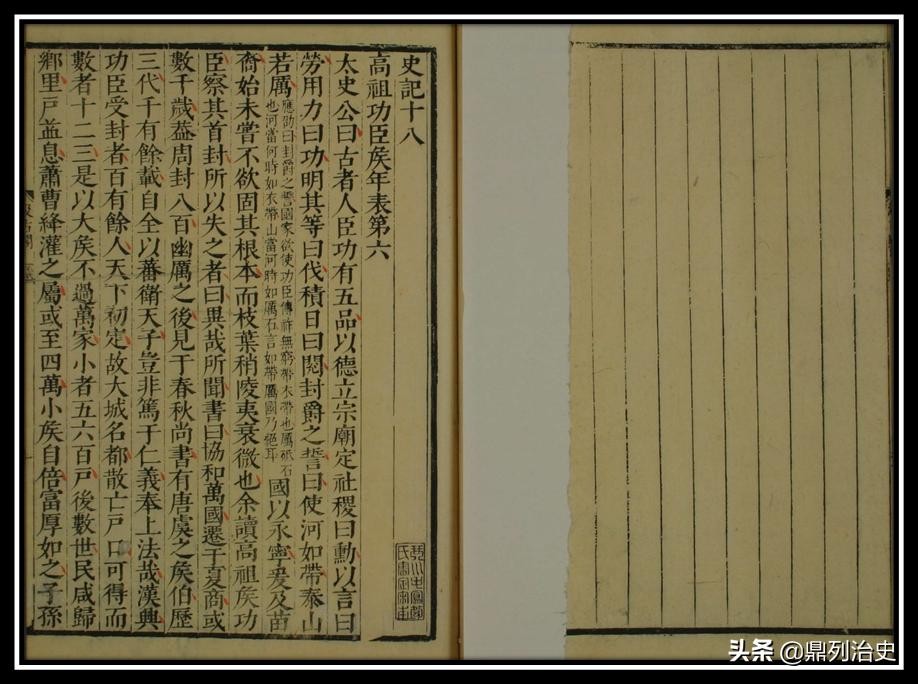 史記十八
高祖功臣矦年表第六
太史公曰古者人臣功有五品以德立宗廟定社稷曰勳以言曰
勞用力曰功明其等曰伐積日曰閱封爵之誓曰使河如帶泰山
若厲
應劭曰封爵之誓國家欲使功臣傳祚無窮帶衣帶也厲砥石
也河當何時如衣帶山當何時如厲石言如帶厲國乃絕耳
國以永寧爰及苗
裔始未嘗不欲固其根本而枝葉稍陵夷衰微也余讀高祖矦功
臣察其首封所以失之者曰異哉所聞書曰協和萬國遷于夏商或
數千歲葢周封八百幽厲之後見于春秋尚書有唐虞之矦伯歷
三代千有餘載自全以蕃衛天子豈非篤于仁義奉上法哉漢興
功臣受封者百有餘人天下初定故大城名都散亡戶口可得而
數者十二三是以大矦不過萬家小者五六百戶後數世民咸歸
鄉里戶益息蕭曹絳灌之屬或至四萬小矦自倍富厚如之子孫
头条 @鼎列治史